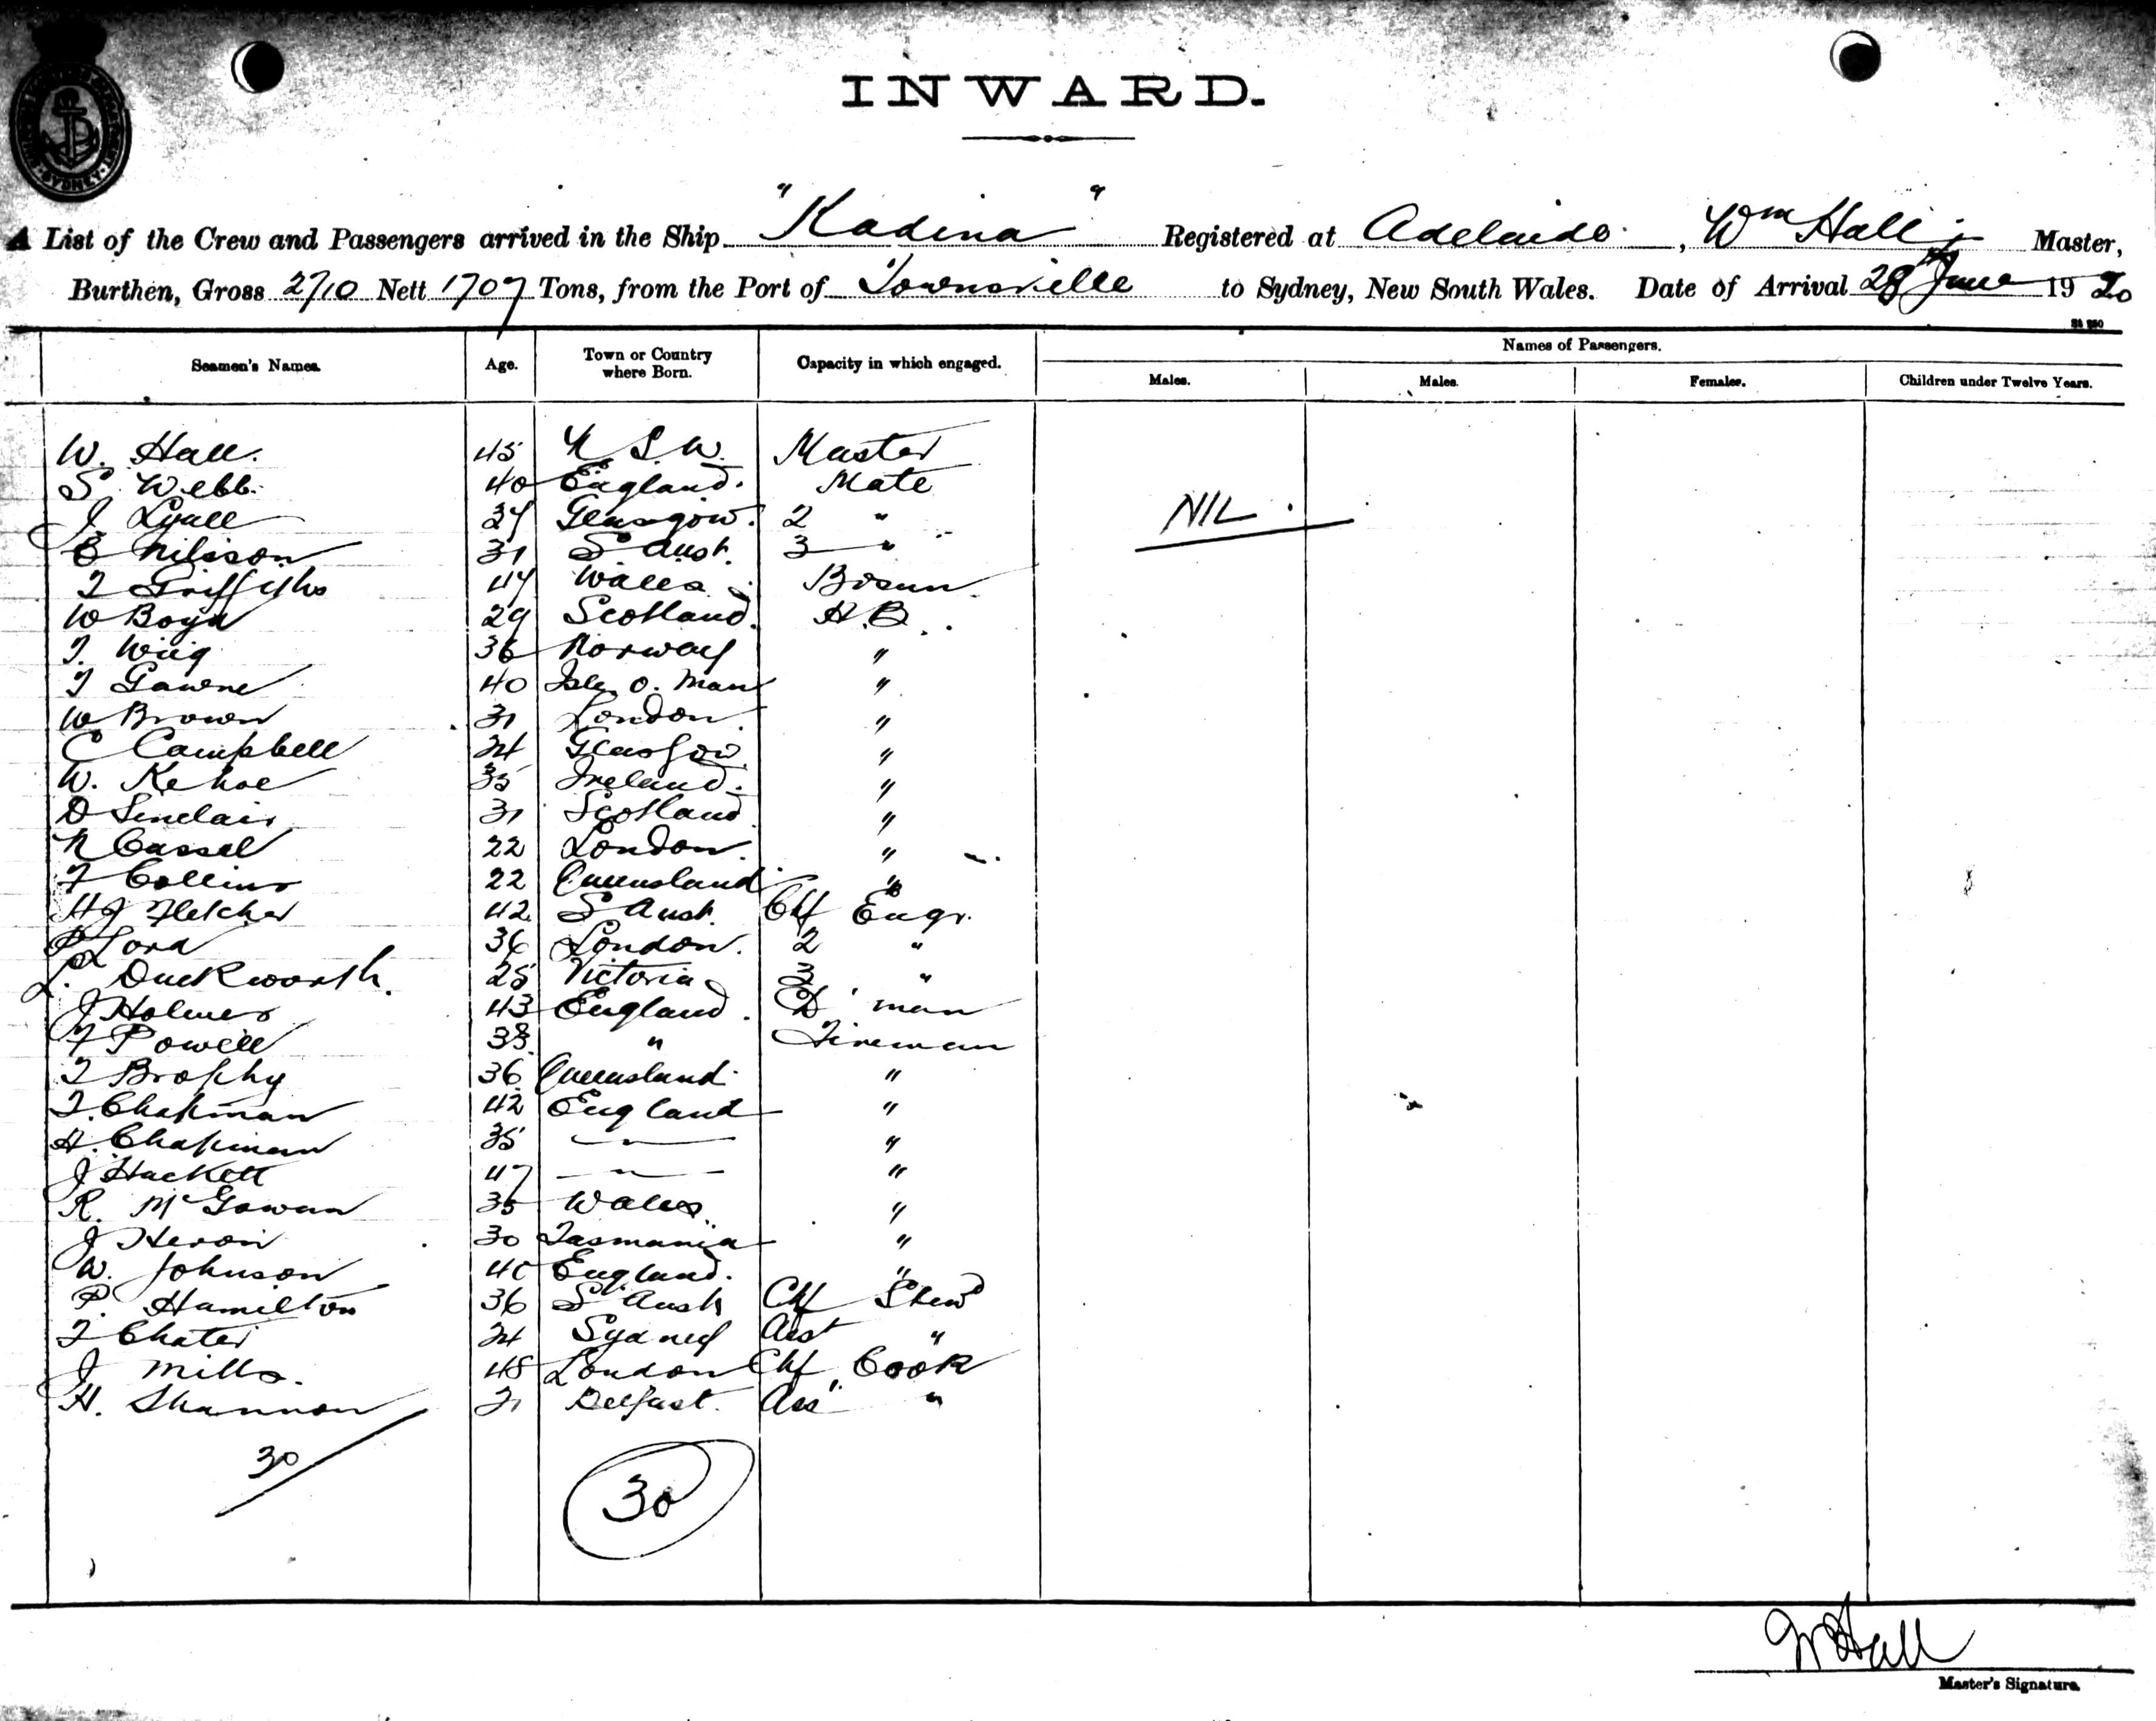 INWARD.
A List of the Crew and Passengers arrived in the Ship "Kadina" Registered at Adelaide, Wm Hall Master,
Burthen, Gross 2710 Nett 1707 Tons, from the Port of Townsville to Sydney, New South Wales. Date of Arrival 28 June 1920
Names of Passengers.
Seamen's Names. Age. Town or Country where Born. Capacity in which engaged. Males. Males. Females. Children under Twelve Years.
W. Hall. 45 N S.W. Master
S. Webb. 40 England. Mate
NIL.
J Lyall Glasgow. 2 "
E Nilsson 31 S Aust. 3 "
T Griffiths 47 Wales Bosun.
W Boyd 29 Scotland. A.B.
T. Wiig 36 Norway "
T Gawne 40 Isle o. Man "
W Brown 31 London "
C Campbell 24 Glasgow "
W. Kehoe 35 Ireland. "
D Sinclair 31 Scotland "
N Cassel 22 London. "
F Collins 22 Queensland "
H J Fletcher 42 S Aust. Chf Engr.
Lord 36 London. 2 "
L. Duckworth. 25 Victoria 3 "
J Holmes 43 England. D' man
F Powell 38 " Fireman
T Brophy 36 Queensland "
T. Chapman 42 England "
A. Chapman 35 — " — "
J Hackett 47 — " — "
R. McGowan 35 Wales. "
J Heron 30 Tasmania "
W. Johnson 40 England. "
P. Hamilton 36 S Aust Chf Stewd
T Chater 24 Sydney Asst "
J Mills. 48 London Chf Cook
H. Shannon 21 Belfast. Ass "
30
30
W Hall
Master's Signature.